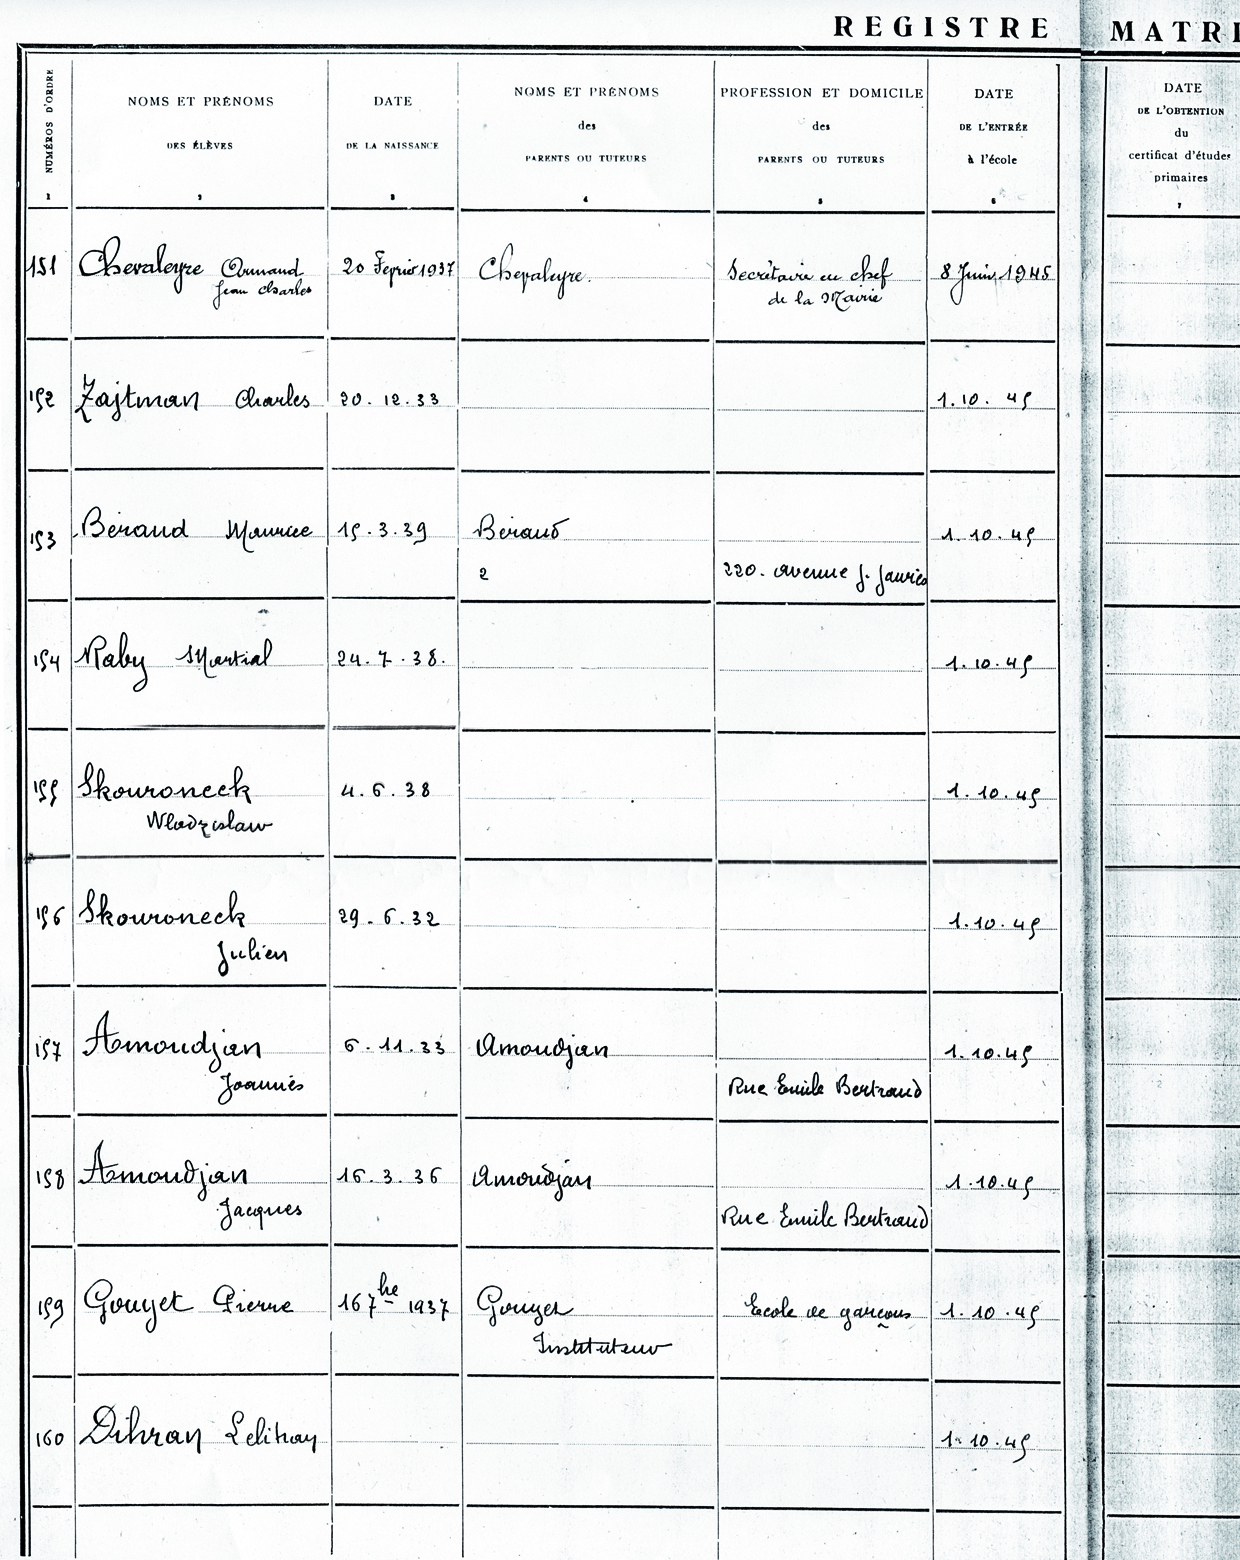 REGISTRE MATRI
NUMÉROS D'ORDRE
1
NOMS ET PRÉNOMS
DES ÉLÈVES
2
DATE
DE LA NAISSANCE
3
NOMS ET PRÉNOMS
des
PARENTS OU TUTEURS
4
PROFESSION ET DOMICILE
des
PARENTS OU TUTEURS
5
DATE
DE L'ENTRÉE
à l'école
6
DATE
DE L'OBTENTION
du
certificat d'études
primaires
7
151 Chevaleyre Armand 20 Fevrier 1937 Chevaleyre. Secrétaire en chef 8 Juin 1945
Jean Charles de la Mairie
152 Zajtman Charles 20. 12. 33 1. 10. 45
153 Béraud Maurice 15. 3. 39 Béraud 1. 10. 45
2 220. avenue J. Jaurès
154 Raby Martial 24. 7. 38. 1. 10. 45
155 Skouroneck 4. 6. 38 1. 10. 45
Wlodzislaw
156 Skouroneck 29. 6. 32 1. 10. 45
Julien
157 Amoudjan 6. 11. 33 Amoudjan 1. 10. 45
Joannès Rue Emile Bertrand
158 Amoudjan 16. 3. 36 Amoudjan 1. 10. 45
Jacques Rue Emile Bertrand
159 Gouyet Pierre 16 7bre 1937 Gouyet Ecole de garçons 1. 10. 45
Instituteur
160 Dihran 1. 10. 45